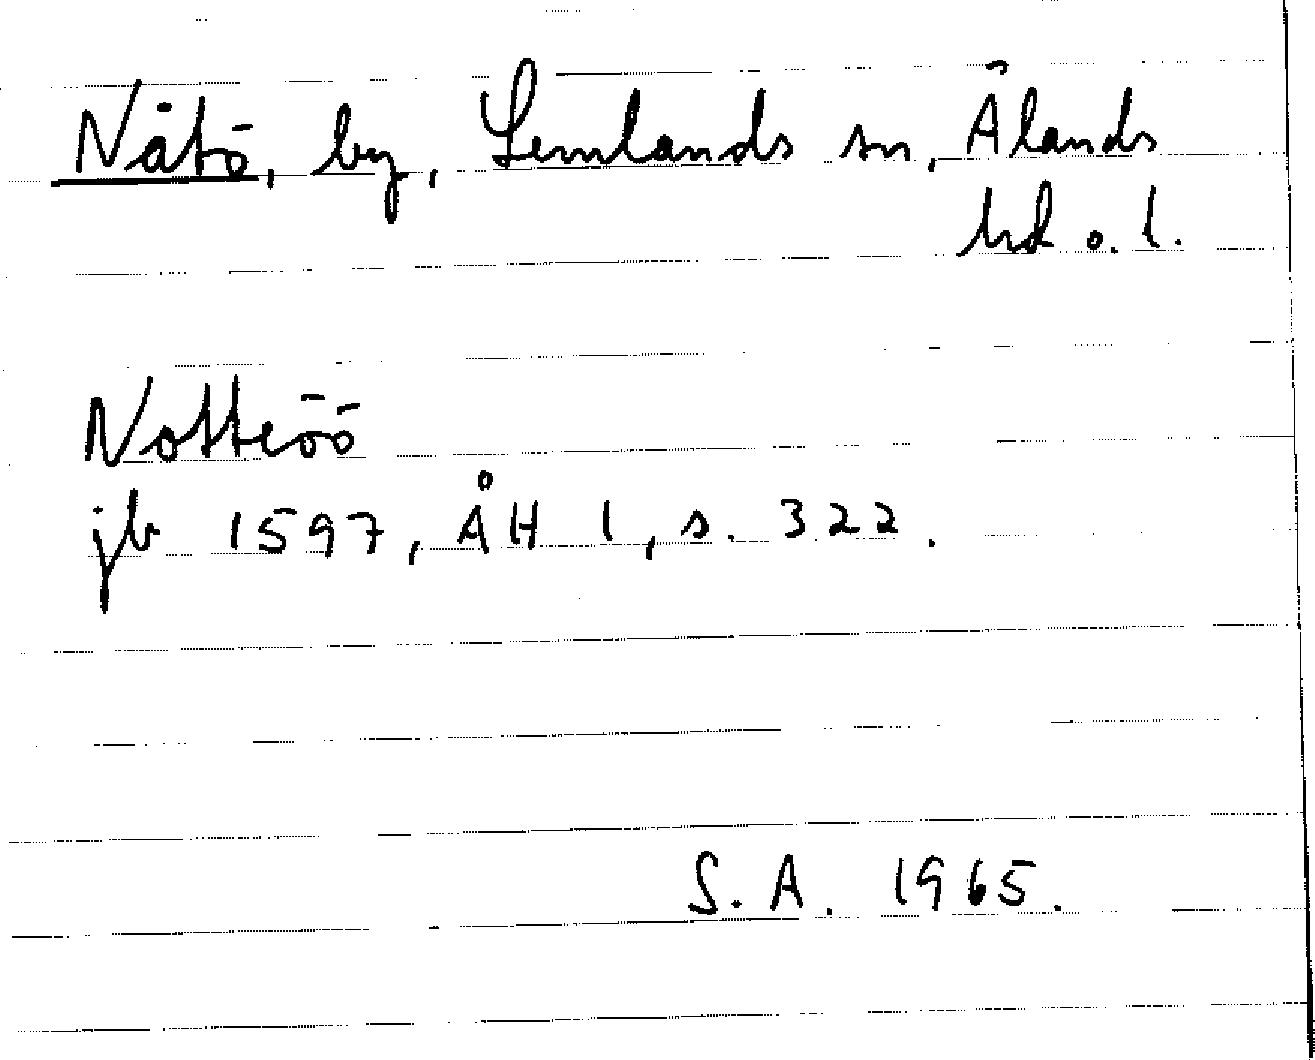 Nåtö, by, Lemlands sn, Ålands
hd o. l.
Notteöö
jb 1597, ÅH 1, s. 322.
S. A. 1965.